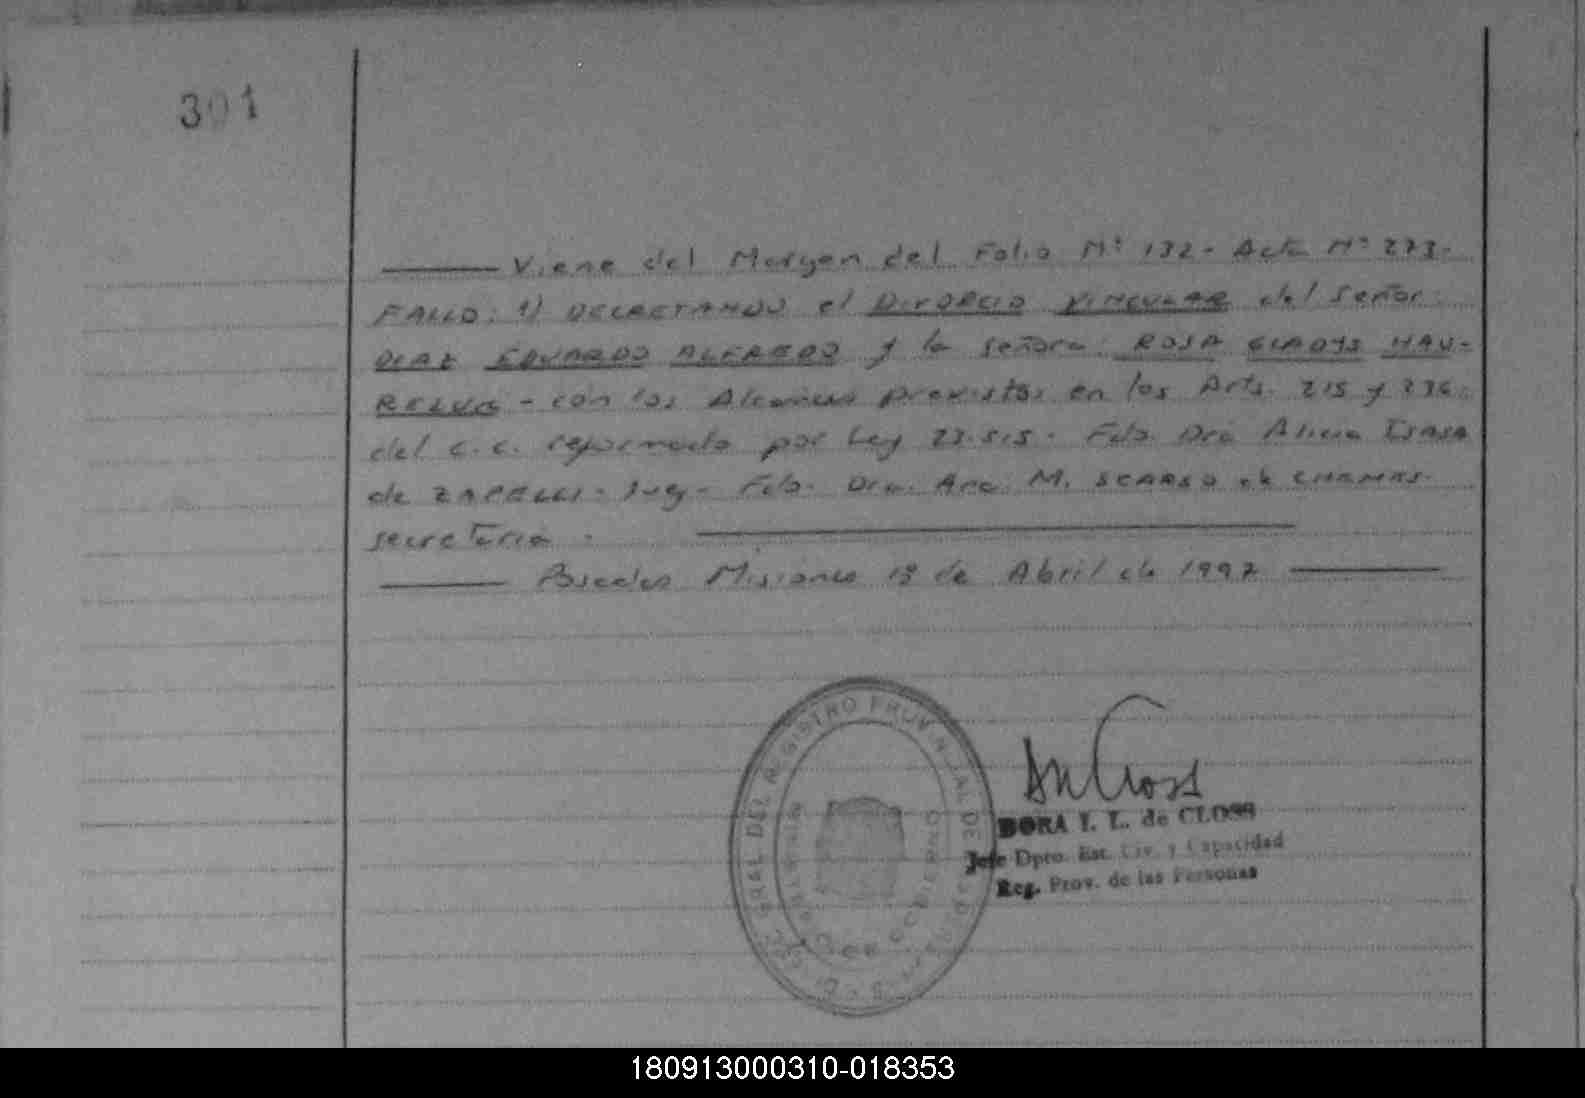 301
Viene del Margen del Folio Nº 132- Acta Nº 273-
FALLO: 1) DECRETANDO el DIVORCIO VINCULAR del Señor:
DIAZ EDUARDO ALFREDO y la señora: ROSA GLADYS MAU-
- con los Alcances previstos en los Arts. 215 y 236
del C.C. reformado por Ley 23.515- Fdo. Dra Alicia
de - Juez- Fdo. Dra. Ana M. SCARSO de
secretaria.
Posadas Misiones 13 de Abril de 1992
GRAL DEL REGISTRO PROVINCIAL DE
DE GOBIERNO
DORA I. L. de CLOSS
Jefe Dpto. Est. Civ. y Capacidad
Reg. Prov. de las Personas
180913000310-018353